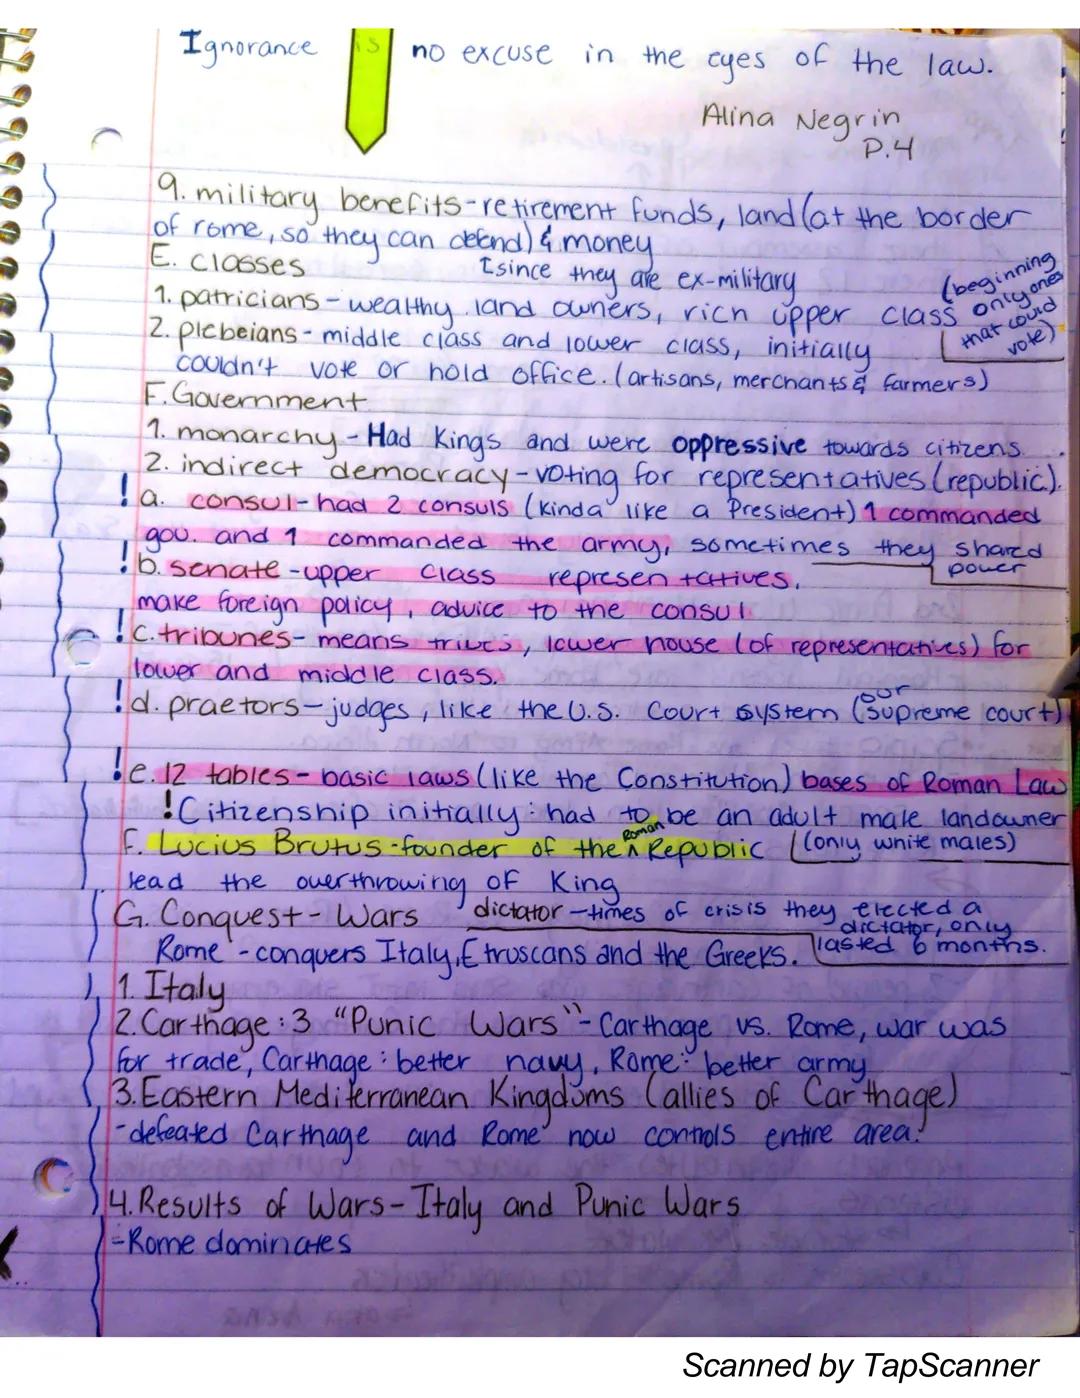 Ignorance is no excuse in the eyes of the law.
Alina Negrin
P.4
9. military benefits-retirement funds, land (at the border
of rome, so they can defend) & money
E. classes
since they are ex-military
(beginning
only ones
that could
vote)
1. patricians - wealthy land owners, rich upper class
2. plebeians - middle class and lower class, initially
couldn't vote or hold office. (artisans, merchants & farmers)
F. Government
1. monarchy - Had Kings and were oppressive towards citizens.
2. indirect democracy - voting for representatives (republic).
! a. consul-had 2 consuls (kinda like a President) 1 commanded
gov. and 1 commanded the army, sometimes they shared
power
! b. senate - upper class representatives.
make foreign policy, advice to the consul
! c. tribunes - means tribes, lower house (of representatives) for
lower and middle class.
! d. praetors - judges, like the U.S. Court system (our
supreme court)
! e. 12 tables - basic laws (like the Constitution) bases of Roman Law
! Citizenship initially: had to be an adult male landowner
(only white males)
f. Lucius Brutus - founder of the Roman Republic
lead the overthrowing of King
G. Conquest - Wars
dictator - times of crisis they elected a
dictator, only
lasted 6 months.
Rome - conquers Italy, Etruscans and the Greeks.
1. Italy
2. Carthage: 3 "Punic Wars" - Carthage vs. Rome, war was
for trade, Carthage: better navy, Rome: better army
3. Eastern Mediterranean Kingdoms (allies of Carthage)
- defeated Carthage and Rome now controls entire area.
4. Results of Wars - Italy and Punic Wars
- Rome dominates
Scanned by TapScanner